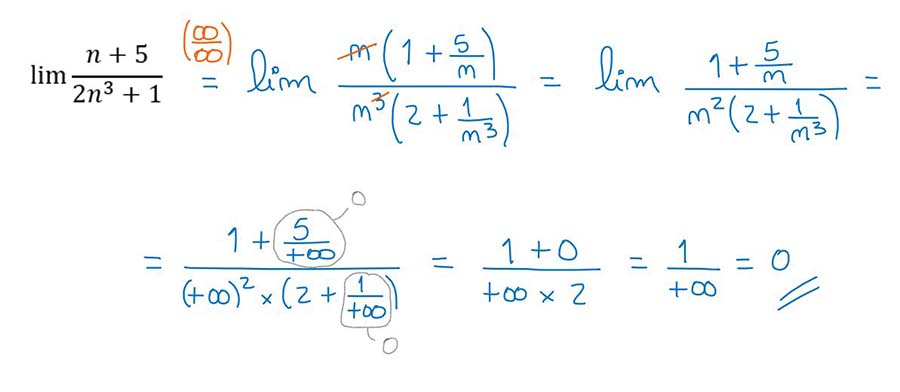 lim (n + 5)/(2n³ + 1) (∞/∞) = lim (n(1 + 5/n))/(n³(2 + 1/n³)) = lim (1 + 5/n)/(n²(2 + 1/n³)) =
0
= (1 + 5/+∞)/((+∞)² × (2 + 1/+∞)) = (1 + 0)/(+∞ × 2) = 1/+∞ = 0
0